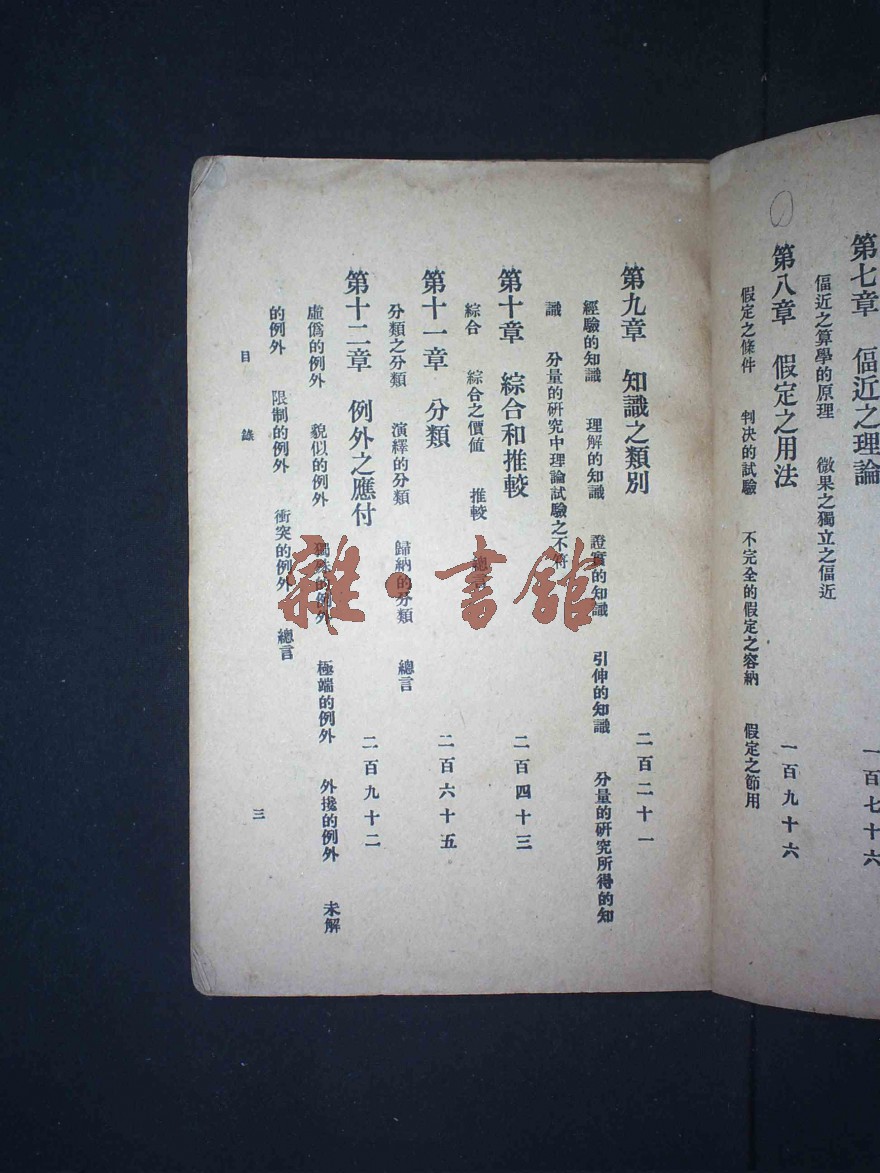 第七章　偪近之理論　一百七十六
偪近之算學的原理　微果之獨立之偪近
第八章　假定之用法　一百九十六
假定之條件　判决的試驗　不完全的假定之容納　假定之節用
第九章　知識之類別　二百二十一
經驗的知識　理解的知識　證實的知識　引伸的知識　分量的研究所得的知
識　分量的研究中理論試驗之不符
第十章　綜合和推較　二百四十三
綜合　綜合之價値　推較　總言
第十一章　分類　二百六十五
分類之分類　演繹的分類　歸納的分類　總言
第十二章　例外之應付　二百九十二
虛僞的例外　貌似的例外　獨殊的例外　極端的例外　外攙的例外　未解
的例外　限制的例外　衝突的例外　總言
目錄　三
雜·書館